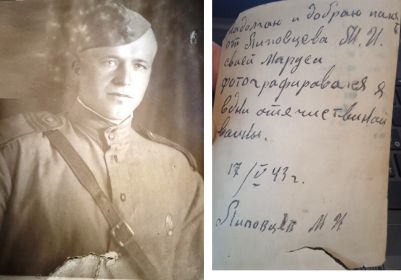 надолган и добраю памя
ть
от Липовцева М. И.
своей Маруси
фотографировался я
в дни отячиственай
ваины.
17/V 43 г.
Липовцев М И